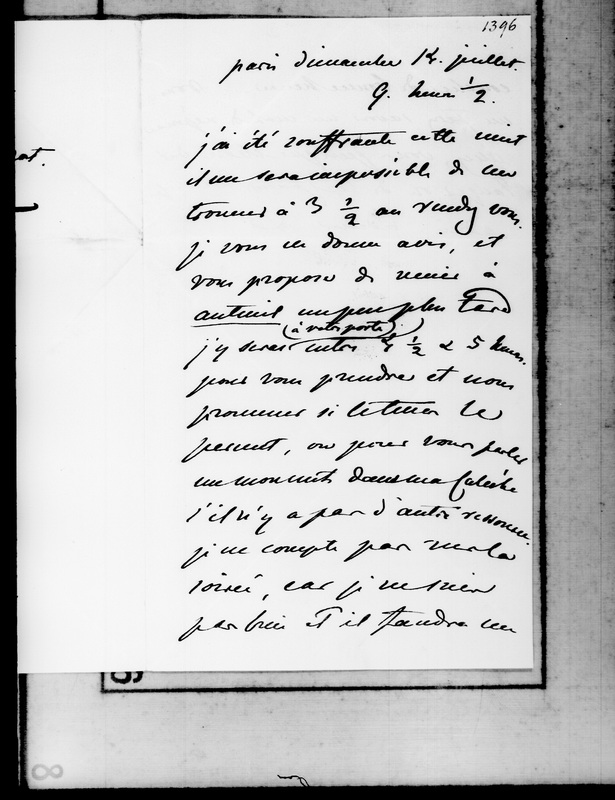 1396
paris dimanche 18. juillet.
9. heures 1/2.
j'ai été souffrante cette nuit
il me sera impossible de me
trouver à 3 1/2 au rendez vous.
je vous en donne avis, et
vous propose de venir à
auteuil un peu plus tard
(à votre porte)
j'y serai entre 4 1/2 & 5 heures.
pour vous prendre et nous
promener si le tems le
permet, ou pour vous parler
un moment dans ma calèche
s'il n'y a pas d'autre ressource.
je ne compte pas sur la
soirée, car je ne suis
pas bien et il faudra me
at.